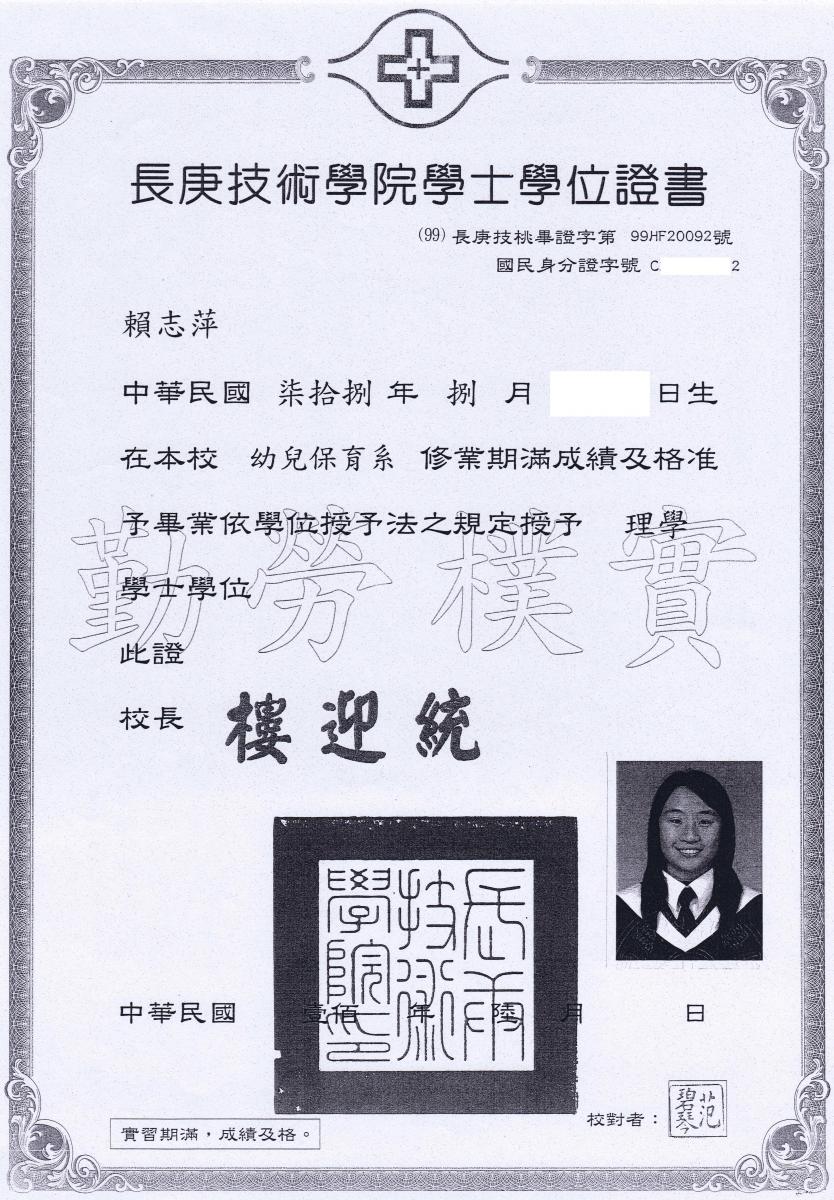 長庚技術學院學士學位證書
(99) 長庚技桃畢證字第 99HF20092號
國民身分證字號 C 2
賴志萍
中華民國 柒拾捌 年 捌 月 日生
在本校 幼兒保育系 修業期滿成績及格准
予畢業依學位授予法之規定授予 理學
學士學位
勤勞樸實
此證
校長 樓迎統
長庚技術學院印
中華民國 壹佰 年 陸 月 日
實習期滿，成績及格。
校對者：